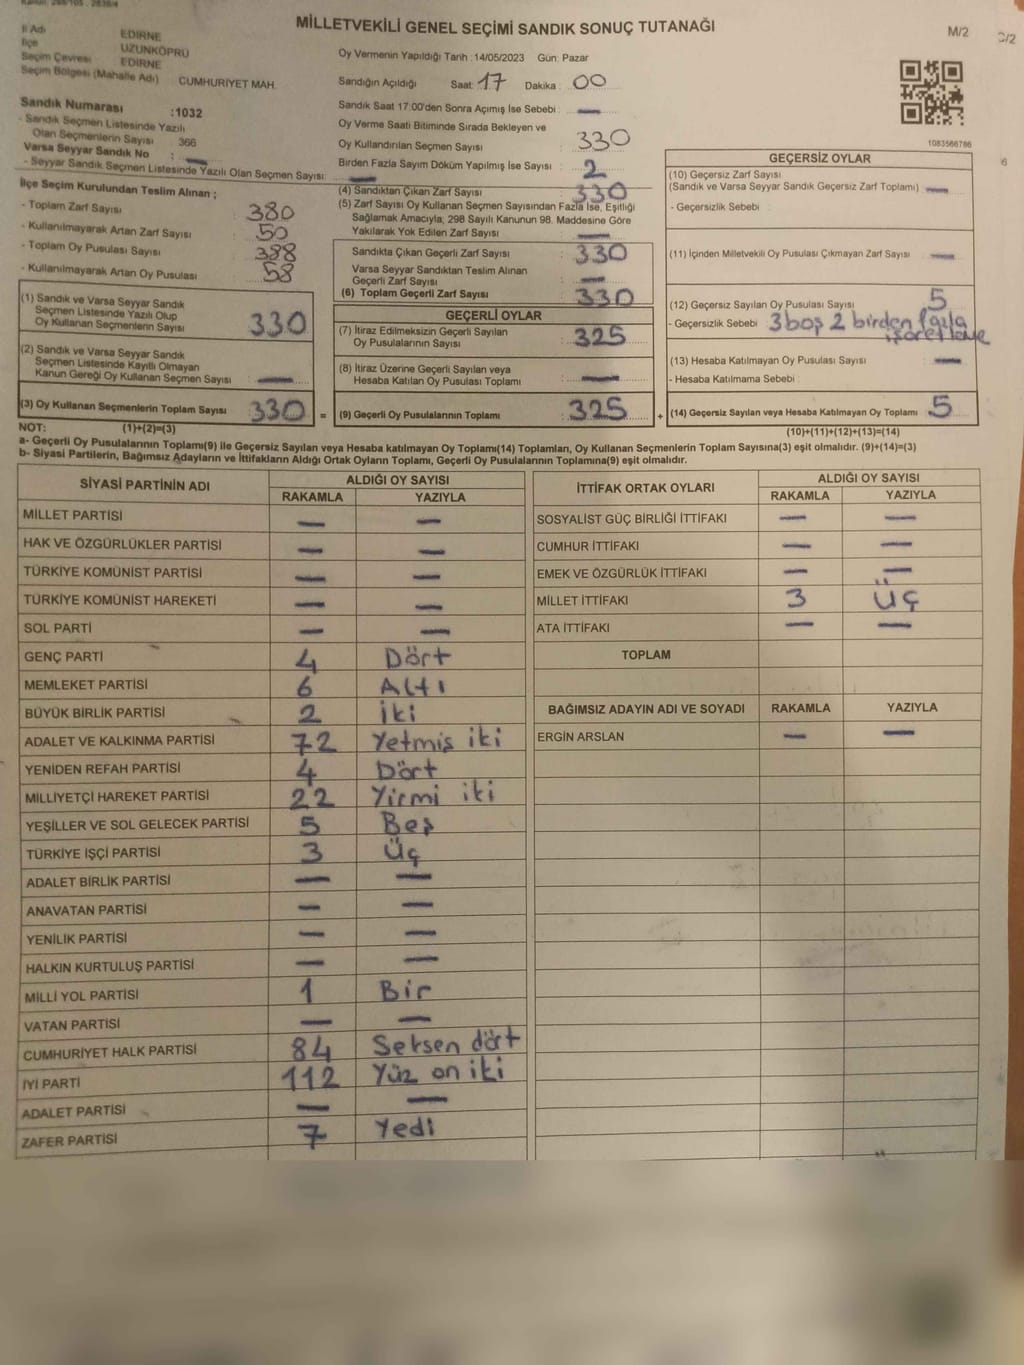 MİLLETVEKİLİ GENEL SEÇİMİ SANDIK SONUÇ TUTANAĞI
M/2
İl Adı EDİRNE
İlçe UZUNKÖPRÜ
Seçim Çevresi EDİRNE
Seçim Bölgesi (Mahalle Adı) CUMHURİYET MAH.
Sandık Numarası :1032
- Sandık Seçmen Listesinde Yazılı
Olan Seçmenlerin Sayısı : 366
Varsa Seyyar Sandık No : —
- Seyyar Sandık Seçmen Listesinde Yazılı Olan Seçmen Sayısı: —
İlçe Seçim Kurulundan Teslim Alınan ;
- Toplam Zarf Sayısı : 380
- Kullanılmayarak Artan Zarf Sayısı : 50
- Toplam Oy Pusulası Sayısı : 388
- Kullanılmayarak Artan Oy Pusulası : 58
(1) Sandık ve Varsa Seyyar Sandık
Seçmen Listesinde Yazılı Olup
Oy Kullanan Seçmenlerin Sayısı 330
(2) Sandık ve Varsa Seyyar Sandık
Seçmen Listesinde Kayıtlı Olmayan
Kanun Gereği Oy Kullanan Seçmen Sayısı —
(3) Oy Kullanan Seçmenlerin Toplam Sayısı 330 =
Oy Vermenin Yapıldığı Tarih :14/05/2023 Gün: Pazar
Sandığın Açıldığı Saat: 17 Dakika : 00
Sandık Saat 17:00'den Sonra Açımış İse Sebebi : —
Oy Verme Saati Bitiminde Sırada Bekleyen ve
Oy Kullandırılan Seçmen Sayısı : 330
Birden Fazla Sayım Döküm Yapılmış İse Sayısı : 2
(4) Sandıktan Çıkan Zarf Sayısı : 330
(5) Zarf Sayısı Oy Kullanan Seçmen Sayısından Fazla İse, Eşitliği
Sağlamak Amacıyla; 298 Sayılı Kanunun 98. Maddesine Göre
Yakılarak Yok Edilen Zarf Sayısı : —
Sandıkta Çıkan Geçerli Zarf Sayısı : 330
Varsa Seyyar Sandıktan Teslim Alınan
Geçerli Zarf Sayısı : —
(6) Toplam Geçerli Zarf Sayısı : 330
GEÇERLİ OYLAR
(7) İtiraz Edilmeksizin Geçerli Sayılan
Oy Pusulalarının Sayısı : 325
(8) İtiraz Üzerine Geçerli Sayılan veya
Hesaba Katılan Oy Pusulası Toplamı : —
(9) Geçerli Oy Pusulalarının Toplamı : 325 +
1083566766
GEÇERSİZ OYLAR
(10) Geçersiz Zarf Sayısı
(Sandık ve Varsa Seyyar Sandık Geçersiz Zarf Toplamı) : —
- Geçersizlik Sebebi :
(11) İçinden Milletvekili Oy Pusulası Çıkmayan Zarf Sayısı : —
(12) Geçersiz Sayılan Oy Pusulası Sayısı : 5
- Geçersizlik Sebebi : 3 boş 2 birden fazla
işaretleme
(13) Hesaba Katılmayan Oy Pusulası Sayısı : —
- Hesaba Katılmama Sebebi :
(14) Geçersiz Sayılan veya Hesaba Katılmayan Oy Toplamı : 5
NOT: (1)+(2)=(3) (10)+(11)+(12)+(13)=(14)
a- Geçerli Oy Pusulalarının Toplamı(9) ile Geçersiz Sayılan veya Hesaba katılmayan Oy Toplamı(14) Toplamları, Oy Kullanan Seçmenlerin Toplam Sayısına(3) eşit olmalıdır. (9)+(14)=(3)
b- Siyasi Partilerin, Bağımsız Adayların ve İttifakların Aldığı Ortak Oyların Toplamı, Geçerli Oy Pusulalarının Toplamına(9) eşit olmalıdır.
SİYASİ PARTİNİN ADI ALDIĞI OY SAYISI
RAKAMLA YAZIYLA
MİLLET PARTİSİ — —
HAK VE ÖZGÜRLÜKLER PARTİSİ — —
TÜRKİYE KOMÜNİST PARTİSİ — —
TÜRKİYE KOMÜNİST HAREKETİ — —
SOL PARTİ — —
GENÇ PARTİ 4 Dört
MEMLEKET PARTİSİ 6 Altı
BÜYÜK BİRLİK PARTİSİ 2 İki
ADALET VE KALKINMA PARTİSİ 72 Yetmiş iki
YENİDEN REFAH PARTİSİ 4 Dört
MİLLİYETÇİ HAREKET PARTİSİ 22 Yirmi iki
YEŞİLLER VE SOL GELECEK PARTİSİ 5 Beş
TÜRKİYE İŞÇİ PARTİSİ 3 Üç
ADALET BİRLİK PARTİSİ — —
ANAVATAN PARTİSİ — —
YENİLİK PARTİSİ — —
HALKIN KURTULUŞ PARTİSİ — —
MİLLİ YOL PARTİSİ 1 Bir
VATAN PARTİSİ — —
CUMHURİYET HALK PARTİSİ 84 Seksen dört
İYİ PARTİ 112 Yüz on iki
ADALET PARTİSİ — —
ZAFER PARTİSİ 7 Yedi
İTTİFAK ORTAK OYLARI ALDIĞI OY SAYISI
RAKAMLA YAZIYLA
SOSYALİST GÜÇ BİRLİĞİ İTTİFAKI — —
CUMHUR İTTİFAKI — —
EMEK VE ÖZGÜRLÜK İTTİFAKI — —
MİLLET İTTİFAKI 3 Üç
ATA İTTİFAKI — —
TOPLAM
BAĞIMSIZ ADAYIN ADI VE SOYADI RAKAMLA YAZIYLA
ERGİN ARSLAN — —